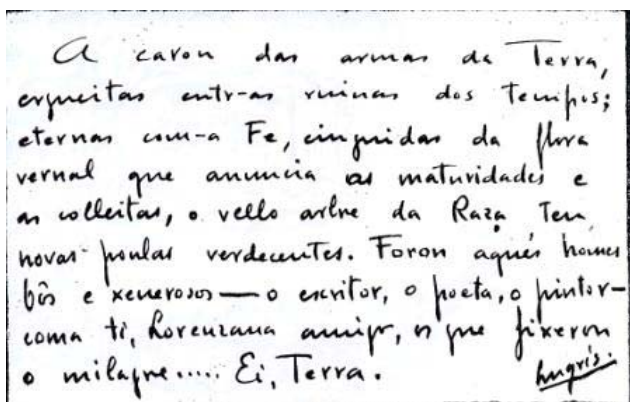 A caron das armas da Terra,
ergueitas entr-as ruinas dos Tempos;
eternas com-a Fe, cinguidas da flora
vernal que anuncia as maturidades e
as colleitas, o vello arbre da Raza Ten
novas poulas verdecentes. Foron aqués homes
bôs e xenerosos—o escritor, o poeta, o pintor-
coma ti, Lorenzana amigo, os que fixeron
o milagre..... Ei, Terra.
Lugrís.